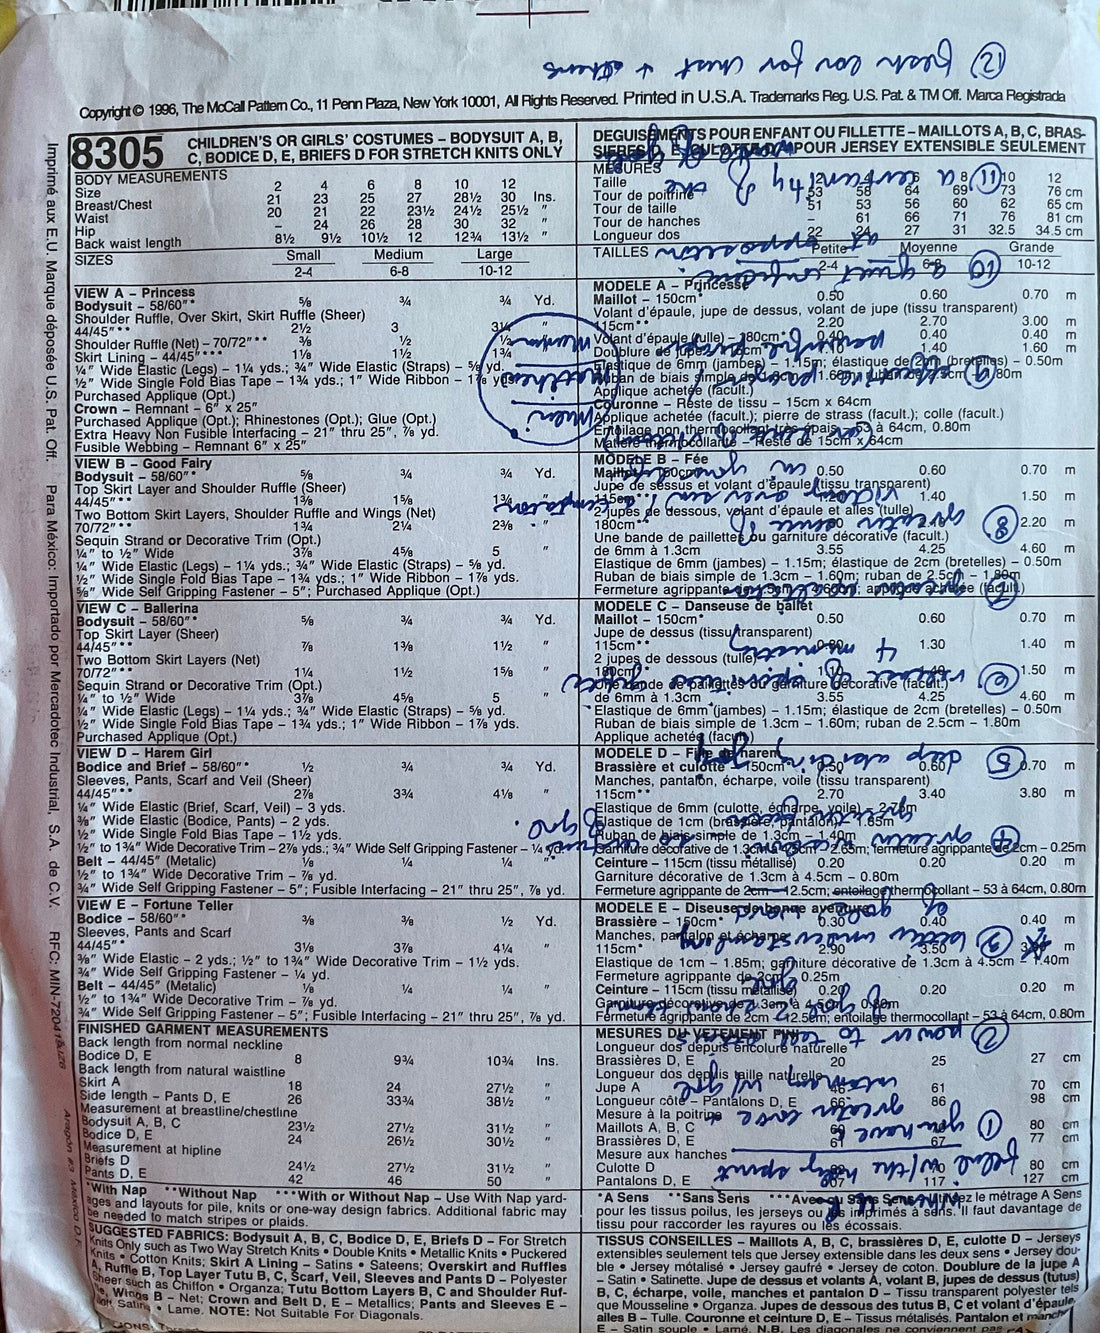 Copyright © 1996, The McCall Pattern Co., 11 Penn Plaza, New York 10001, All Rights Reserved. Printed in U.S.A. Trademarks Reg. U.S. Pat. & TM Off. Marca Registrada
8305 CHILDREN'S OR GIRLS' COSTUMES – BODYSUIT A, B,
C, BODICE D, E, BRIEFS D FOR STRETCH KNITS ONLY
BODY MEASUREMENTS
Size 2 4 6 8 10 12
Breast/Chest 21 23 25 27 28½ 30 Ins.
Waist 20 21 22 23½ 24½ 25½ "
Hip – 24 26 28 30 32 "
Back waist length 8½ 9½ 10½ 12 12¾ 13½ "
SIZES Small Medium Large
2-4 6-8 10-12
VIEW A – Princess
Bodysuit – 58/60"* ⅝ ¾ ¾ Yd.
Shoulder Ruffle, Over Skirt, Skirt Ruffle (Sheer)
44/45"** 2½ 3 3¼ "
Shoulder Ruffle (Net) – 70/72"** ⅜ ½ ½
Skirt Lining – 44/45"*** 1⅛ 1½ 1¾
¼" Wide Elastic (Legs) – 1¼ yds.; ¾" Wide Elastic (Straps) – ⅝ yd.
½" Wide Single Fold Bias Tape – 1¾ yds.; 1" Wide Ribbon – 1⅞ yds.
Purchased Applique (Opt.)
Crown – Remnant – 6" x 25"
Purchased Applique (Opt.); Rhinestones (Opt.); Glue (Opt.)
Extra Heavy Non Fusible Interfacing – 21" thru 25", ⅞ yd.
Fusible Webbing – Remnant 6" x 25"
VIEW B – Good Fairy
Bodysuit – 58/60"* ⅝ ¾ ¾ Yd.
Top Skirt Layer and Shoulder Ruffle (Sheer)
44/45"** 1⅜ 1⅝ 1¾
Two Bottom Skirt Layers, Shoulder Ruffle and Wings (Net)
70/72"** 1¾ 2¼ 2⅜ "
Sequin Strand or Decorative Trim (Opt.)
¼" to ½" Wide 3⅞ 4⅝ 5 "
¼" Wide Elastic (Legs) – 1¼ yds.; ¾" Wide Elastic (Straps) – ⅝ yd.
½" Wide Single Fold Bias Tape – 1¾ yds.; 1" Wide Ribbon – 1⅞ yds.
⅝" Wide Self Gripping Fastener – 5"; Purchased Applique (Opt.)
VIEW C – Ballerina
Bodysuit – 58/60"* ⅝ ¾ ¾ Yd.
Top Skirt Layer (Sheer)
44/45"** ⅞ 1⅜ 1½ "
Two Bottom Skirt Layers (Net)
70/72"** 1¼ 1½ 1⅝ "
Sequin Strand or Decorative Trim (Opt.)
¼" to ½" Wide 3⅞ 4⅝ 5 "
¼" Wide Elastic (Legs) – 1¼ yds.; ¾" Wide Elastic (Straps) – ⅝ yd.
½" Wide Single Fold Bias Tape – 1¾ yds.; 1" Wide Ribbon – 1⅞ yds.
Purchased Applique (Opt.)
VIEW D – Harem Girl
Bodice and Brief – 58/60"* ½ ¾ ¾ Yd.
Sleeves, Pants, Scarf and Veil (Sheer)
44/45"** 2⅞ 3¾ 4⅛ "
¼" Wide Elastic (Brief, Scarf, Veil) – 3 yds.
⅜" Wide Elastic (Bodice, Pants) – 2 yds.
½" Wide Single Fold Bias Tape – 1½ yds.
½" to 1¾" Wide Decorative Trim – 2⅞ yds.; ¾" Wide Self Gripping Fastener – ¼ yd.
Belt – 44/45" (Metallic) ⅛ ¼ ¼ "
½" to 1¾" Wide Decorative Trim – ⅞ yd.
¾" Wide Self Gripping Fastener – 5"; Fusible Interfacing – 21" thru 25", ⅞ yd.
VIEW E – Fortune Teller
Bodice – 58/60"* ⅜ ⅜ ½ Yd.
Sleeves, Pants and Scarf
44/45"** 3⅛ 3⅞ 4¼ "
⅜" Wide Elastic – 2 yds.; ½" to 1¾" Wide Decorative Trim – 1½ yds.
¾" Wide Self Gripping Fastener – ¼ yd.
Belt – 44/45" (Metallic) ⅛ ¼ ¼ "
½" to 1¾" Wide Decorative Trim – ⅞ yd.
¾" Wide Self Gripping Fastener – 5"; Fusible Interfacing – 21" thru 25", ⅞ yd.
FINISHED GARMENT MEASUREMENTS
Back length from normal neckline
Bodice D, E 8 9¾ 10¾ Ins.
Back length from natural waistline
Skirt A 18 24 27½ "
Side length – Pants D, E 26 33¾ 38½ "
Measurement at breastline/chestline
Bodysuit A, B, C 23½ 27½ 31½ "
Bodice D, E 24 26½ 30½ "
Measurement at hipline
Briefs D 24½ 27½ 31½ "
Pants D, E 42 46 50 "
*With Nap **Without Nap ***With or Without Nap – Use With Nap yard-
ages and layouts for pile, knits or one-way design fabrics. Additional fabric may
be needed to match stripes or plaids.
SUGGESTED FABRICS: Bodysuit A, B, C, Bodice D, E, Briefs D – For Stretch
Knits Only such as Two Way Stretch Knits • Double Knits • Metallic Knits • Puckered
Knits • Cotton Knits; Skirt A Lining – Satins • Sateens; Overskirt and Ruffles
A, Ruffle B, Top Layer Tutu B, C, Scarf, Veil, Sleeves and Pants D – Polyester
Sheer such as Chiffon • Organza; Tutu Bottom Layers B, C and Shoulder Ruf-
fle, Wings B – Net; Crown and Belt D, E – Metallics; Pants and Sleeves E –
Soft Satin • Lame. NOTE: Not Suitable For Diagonals.
DEGUISEMENTS POUR ENFANT OU FILLETTE – MAILLOTS A, B, C, BRAS-
SIERES D, E, CULOTTE D POUR JERSEY EXTENSIBLE SEULEMENT
MESURES
Taille 2 4 6 8 10 12
Tour de poitrine 53 58 64 69 73 76 cm
Tour de taille 51 53 56 60 62 65 cm
Tour de hanches – 61 66 71 76 81 cm
Longueur dos 22 24 27 31 32.5 34.5 cm
TAILLES Petite Moyenne Grande
2-4 6-8 10-12
MODELE A – Princesse
Maillot – 150cm* 0.50 0.60 0.70 m
Volant d'épaule, jupe de dessus, volant de jupe (tissu transparent)
115cm** 2.20 2.70 3.00 m
Volant d'épaule (tulle) – 180cm** 0.40 0.40 m
Doublure de jupe 1.40 1.60 m
Elastique de 6mm (jambes) – 1.15m; élastique de 2cm (bretelles) – 0.50m
Ruban de biais simple
Applique achetée (facult.)
Couronne – Reste de tissu – 15cm x 64cm
Applique achetée (facult.); pierre de strass (facult.); colle (facult.)
Entoilage non thermocollant très épais – 53 à 64cm, 0.80m
Matière thermocollante – Reste de 15cm x 64cm
MODELE B – Fée
Maillot – 150cm* 0.50 0.60 0.70 m
Jupe de dessus et volant d'épaule (tissu transparent)
115cm** 1.40 1.50 m
2 jupes de dessous, volant d'épaule et ailes (tulle)
180cm** 2.20 m
Une bande de paillettes ou garniture décorative (facult.)
de 6mm à 1.3cm 3.55 4.25 4.60 m
Elastique de 6mm (jambes) – 1.15m; élastique de 2cm (bretelles) – 0.50m
Ruban de biais simple de 1.3cm – 1.60m; ruban de 2.5cm – 1.80m
Fermeture agrippante applique achetée (facult.)
MODELE C – Danseuse de ballet
Maillot – 150cm* 0.50 0.60 0.70 m
Jupe de dessus (tissu transparent)
115cm** 1.30 1.40 m
2 jupes de dessous (tulle)
180cm** 1.50 m
Une bande de paillettes ou garniture décorative (facult.)
de 6mm à 1.3cm 3.55 4.25 4.60 m
Elastique de 6mm (jambes) – 1.15m; élastique de 2cm (bretelles) – 0.50m
Ruban de biais simple de 1.3cm – 1.60m; ruban de 2.5cm – 1.80m
Applique achetée (facult.)
MODELE D – Fille de harem
Brassière et culotte – 150cm* 0.50 0.60 0.70 m
Manches, pantalon, écharpe, voile (tissu transparent)
115cm** 2.70 3.40 3.80 m
Elastique de 6mm (culotte, écharpe, voile) – 2.75m
Elastique de 1cm (brassière, pantalon) – 1.85m
Ruban de biais simple de 1.3cm – 1.40m
Garniture décorative de 1.3cm à 4.5cm – 2.65m; fermeture agrippante de 2cm – 0.25m
Ceinture – 115cm (tissu métallisé) 0.20 0.20 0.20 m
Garniture décorative de 1.3cm à 4.5cm – 0.80m
Fermeture agrippante de 2cm – 12.5cm; entoilage thermocollant – 53 à 64cm, 0.80m
MODELE E – Diseuse de bonne aventure
Brassière – 150cm* 0.30 0.40 0.40 m
Manches, pantalon et écharpe
115cm* 2.90 3.50 m
Elastique de 1cm – 1.85m; garniture décorative de 1.3cm à 4.5cm – 1.40m
Fermeture agrippante de 2cm – 0.25m
Ceinture – 115cm (tissu métallisé) 0.20 0.20 0.20 m
Garniture décorative de 1.3cm à 4.5cm – 0.80m
Fermeture agrippante de 2cm – 12.5cm; entoilage thermocollant – 53 à 64cm, 0.80m
MESURES DU VETEMENT FINI
Longueur dos depuis encolure naturelle
Brassières D, E 20 25 27 cm
Longueur dos depuis taille naturelle
Jupe A 46 61 70 cm
Longueur côté – Pantalons D, E 66 86 98 cm
Mesure à la poitrine
Maillots A, B, C 80 cm
Brassières D, E 61 67 77 cm
Mesure aux hanches
Culotte D 80 cm
Pantalons D, E 107 117 127 cm
*A Sens **Sans Sens ***Avec ou Sans Sens – Utilisez le métrage A Sens
pour les tissus poilus, les jerseys ou les imprimés à sens. Il faut davantage de
tissu pour raccorder les rayures ou les écossais.
TISSUS CONSEILLES – Maillots A, B, C, brassières D, E, culotte D – Jerseys
extensibles seulement tels que Jersey extensible dans les deux sens • Jersey dou-
ble • Jersey métalisé • Jersey gaufré • Jersey de coton. Doublure de la jupe A
– Satin • Satinette. Jupe de dessus et volants A, volant B, jupes de dessus (tutus)
B, C, écharpe, voile, manches et pantalon D – Tissus transparent polyester tels
que Mousseline • Organza. Jupes de dessous des tutus B, C et volant d'épaule,
ailes B – Tulle. Couronne et ceinture D, E – Tissus métalisés. Pantalon et manches
E – Satin souple • Lamé. N.B. Les diagonales ne conviennent pas
Imprimé aux E.U. Marque déposée U.S. Pat. Off. Para México: Importado por Mercadotec Industrial, S.A. de C.V. RFC: MIN-720418
w/the holy spirit
you have
① greater love &
intimacy w/ god
② power to tell others
③ better understanding
of gods word
④ greater desire to worship
god
greater faith
⑤ deep abiding joy
⑥ release of spiritual gifts
& ministries
⑦ greater
⑧ greater sense of
victory over sin, & temptation
in your life
⑨ effective
prayer
⑩ a great confidence
at opposition
⑪ a certainty of the
of god
⑫ fresh love for christ & others